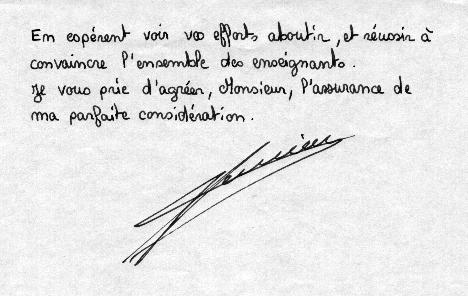 En espérent voir vos efforts aboutir, et réussir à
convaincre l'ensemble des enseignants.
Je vous prie d'agréer, Monsieur, l'assurance de
ma parfaite considération.